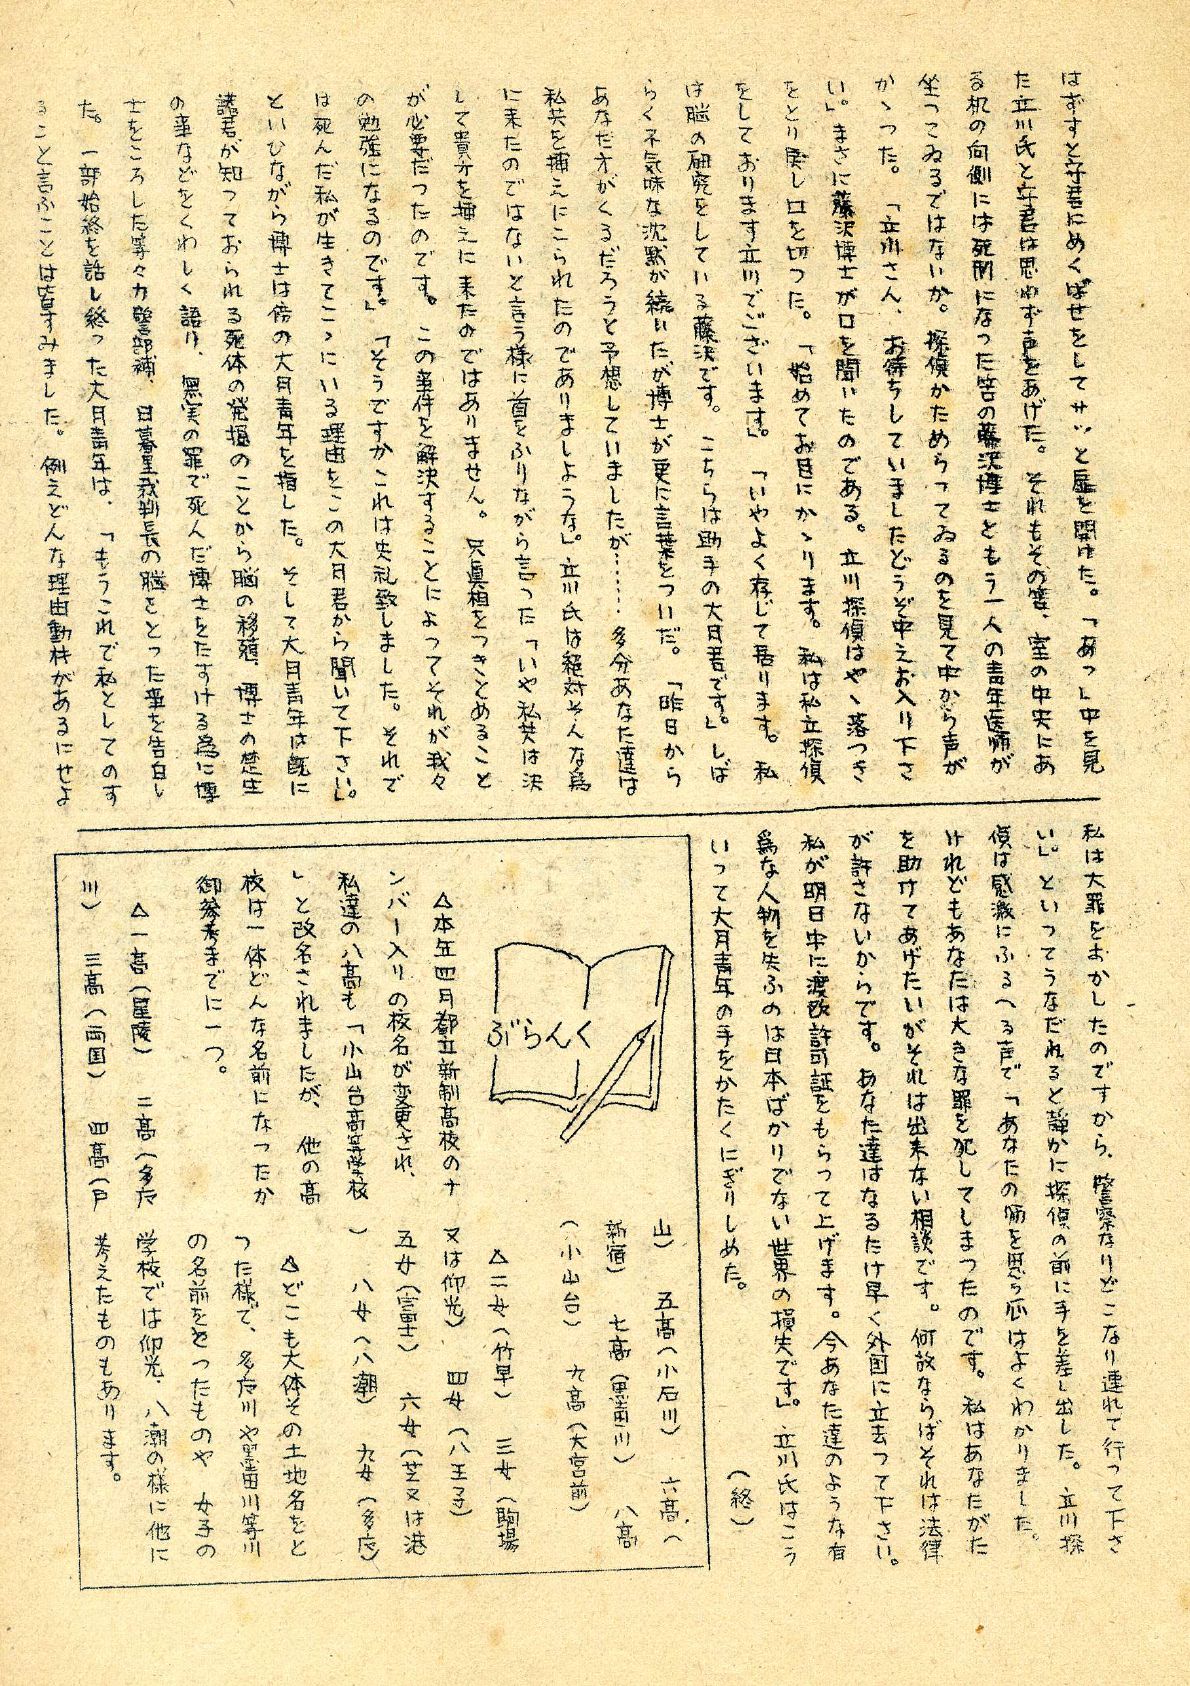 はずすと守君にめくばせをしてサッと扉を開けた。「あっ」中を見
た立川氏と守君は思わず声をあげた。それもその筈、室の中央にあ
る机の向側には死刑になった筈の藤沢博士ともう一人の青年医師が
坐つてゐるではないか。探偵がためらってゐるのを見て中から声が
かゝつた。「立川さん、お待ちしていましたどうぞ中えお入り下さ
い。」まさに藤沢博士が口を開いたのである。立川探偵はやゝ落つき
をとり戻し口を切つた。「始めてお目にかゝります。私は私立探偵
をしております立川でございます。」「いやよく存じて居ります。私
は脳の研究をしている藤沢です。こちらは助手の大月君です。」しば
らく不気味な沈黙が続いたが博士が更に言葉をついだ。「昨日から
あなた方がくるだろうと予想していましたが……多分あなた達は
私共を捕えにこられたのでありましような。」立川氏は絶対そんな為
に来たのではないと言う様に首をふりながら言った「いや私共は決
して貴方を捕えに来たのではありません。只真相をつきとめること
が必要だつたのです。この事件を解決することによつてそれが我々
の勉強になるのです。」「そうですかこれは失礼致しました。それで
は死んだ私が生きてこゝにいる理由をこの大月君から聞いて下さい。」
といひながら博士は傍の大月青年を指した。そして大月青年は既に
諸君が知つておられる死体の発掘のことから脳の移殖、博士の蘇生
の事などをくわしく語り、無実の罪で死んだ博士をたすける為に博
士をころした等々力警部補、日暮里裁判長の脳をとった事を告白し
た。一部始終を話し終った大月青年は、「もうこれで私としてのす
ること言ふことは皆すみました。例えどんな理由動機があるにせよ
私は大罪をおかしたのですから、警察なりどこなり連れて行って下さ
い。」といつてうなだれると静かに探偵の前に手を差し出した。立川探
偵は感激にふるへる声で「あなたの師を思う心はよくわかりました。
けれどもあなたは大きな罪を犯してしまつたのです。私はあなたがた
を助けてあげたいがそれは出来ない相談です。何故ならばそれは法律
が許さないからです。あなた達はなるたけ早く外国に立去つて下さい。
私が明日中に渡航許可証をもらって上げます。今あなた達のような有
為な人物を失ふのは日本ばかりでない世界の損失です」。立川氏はこう
いつて大月青年の手をかたくにぎりしめた。
(終)
ぶらんく
△本年四月都立新制高校のナ
ンバー入りの校名が変更され、
私達の八高も「小山台高等学校
」と改名されましたが、他の高
校は一体どんな名前になつたか
御参考までに一つ。
△一高(星陵) 二高(多摩
川) 三高(両国) 四高(戸
山) 五高(小石川) 六高(
新宿) 七高(墨田川) 八高
(小山台) 九高(大宮前)
△二女(竹早) 三女(駒場
又は仰光) 四女(八王子)
五女(富士) 六女(芝又は港
) 八女(八潮) 九女(多摩)
△どこも大体その土地名をと
つた様で、多摩川や墨田川等川
の名前をとつたものや 女子の
学校では仰光、八潮の様に他に
考えたものもあります。